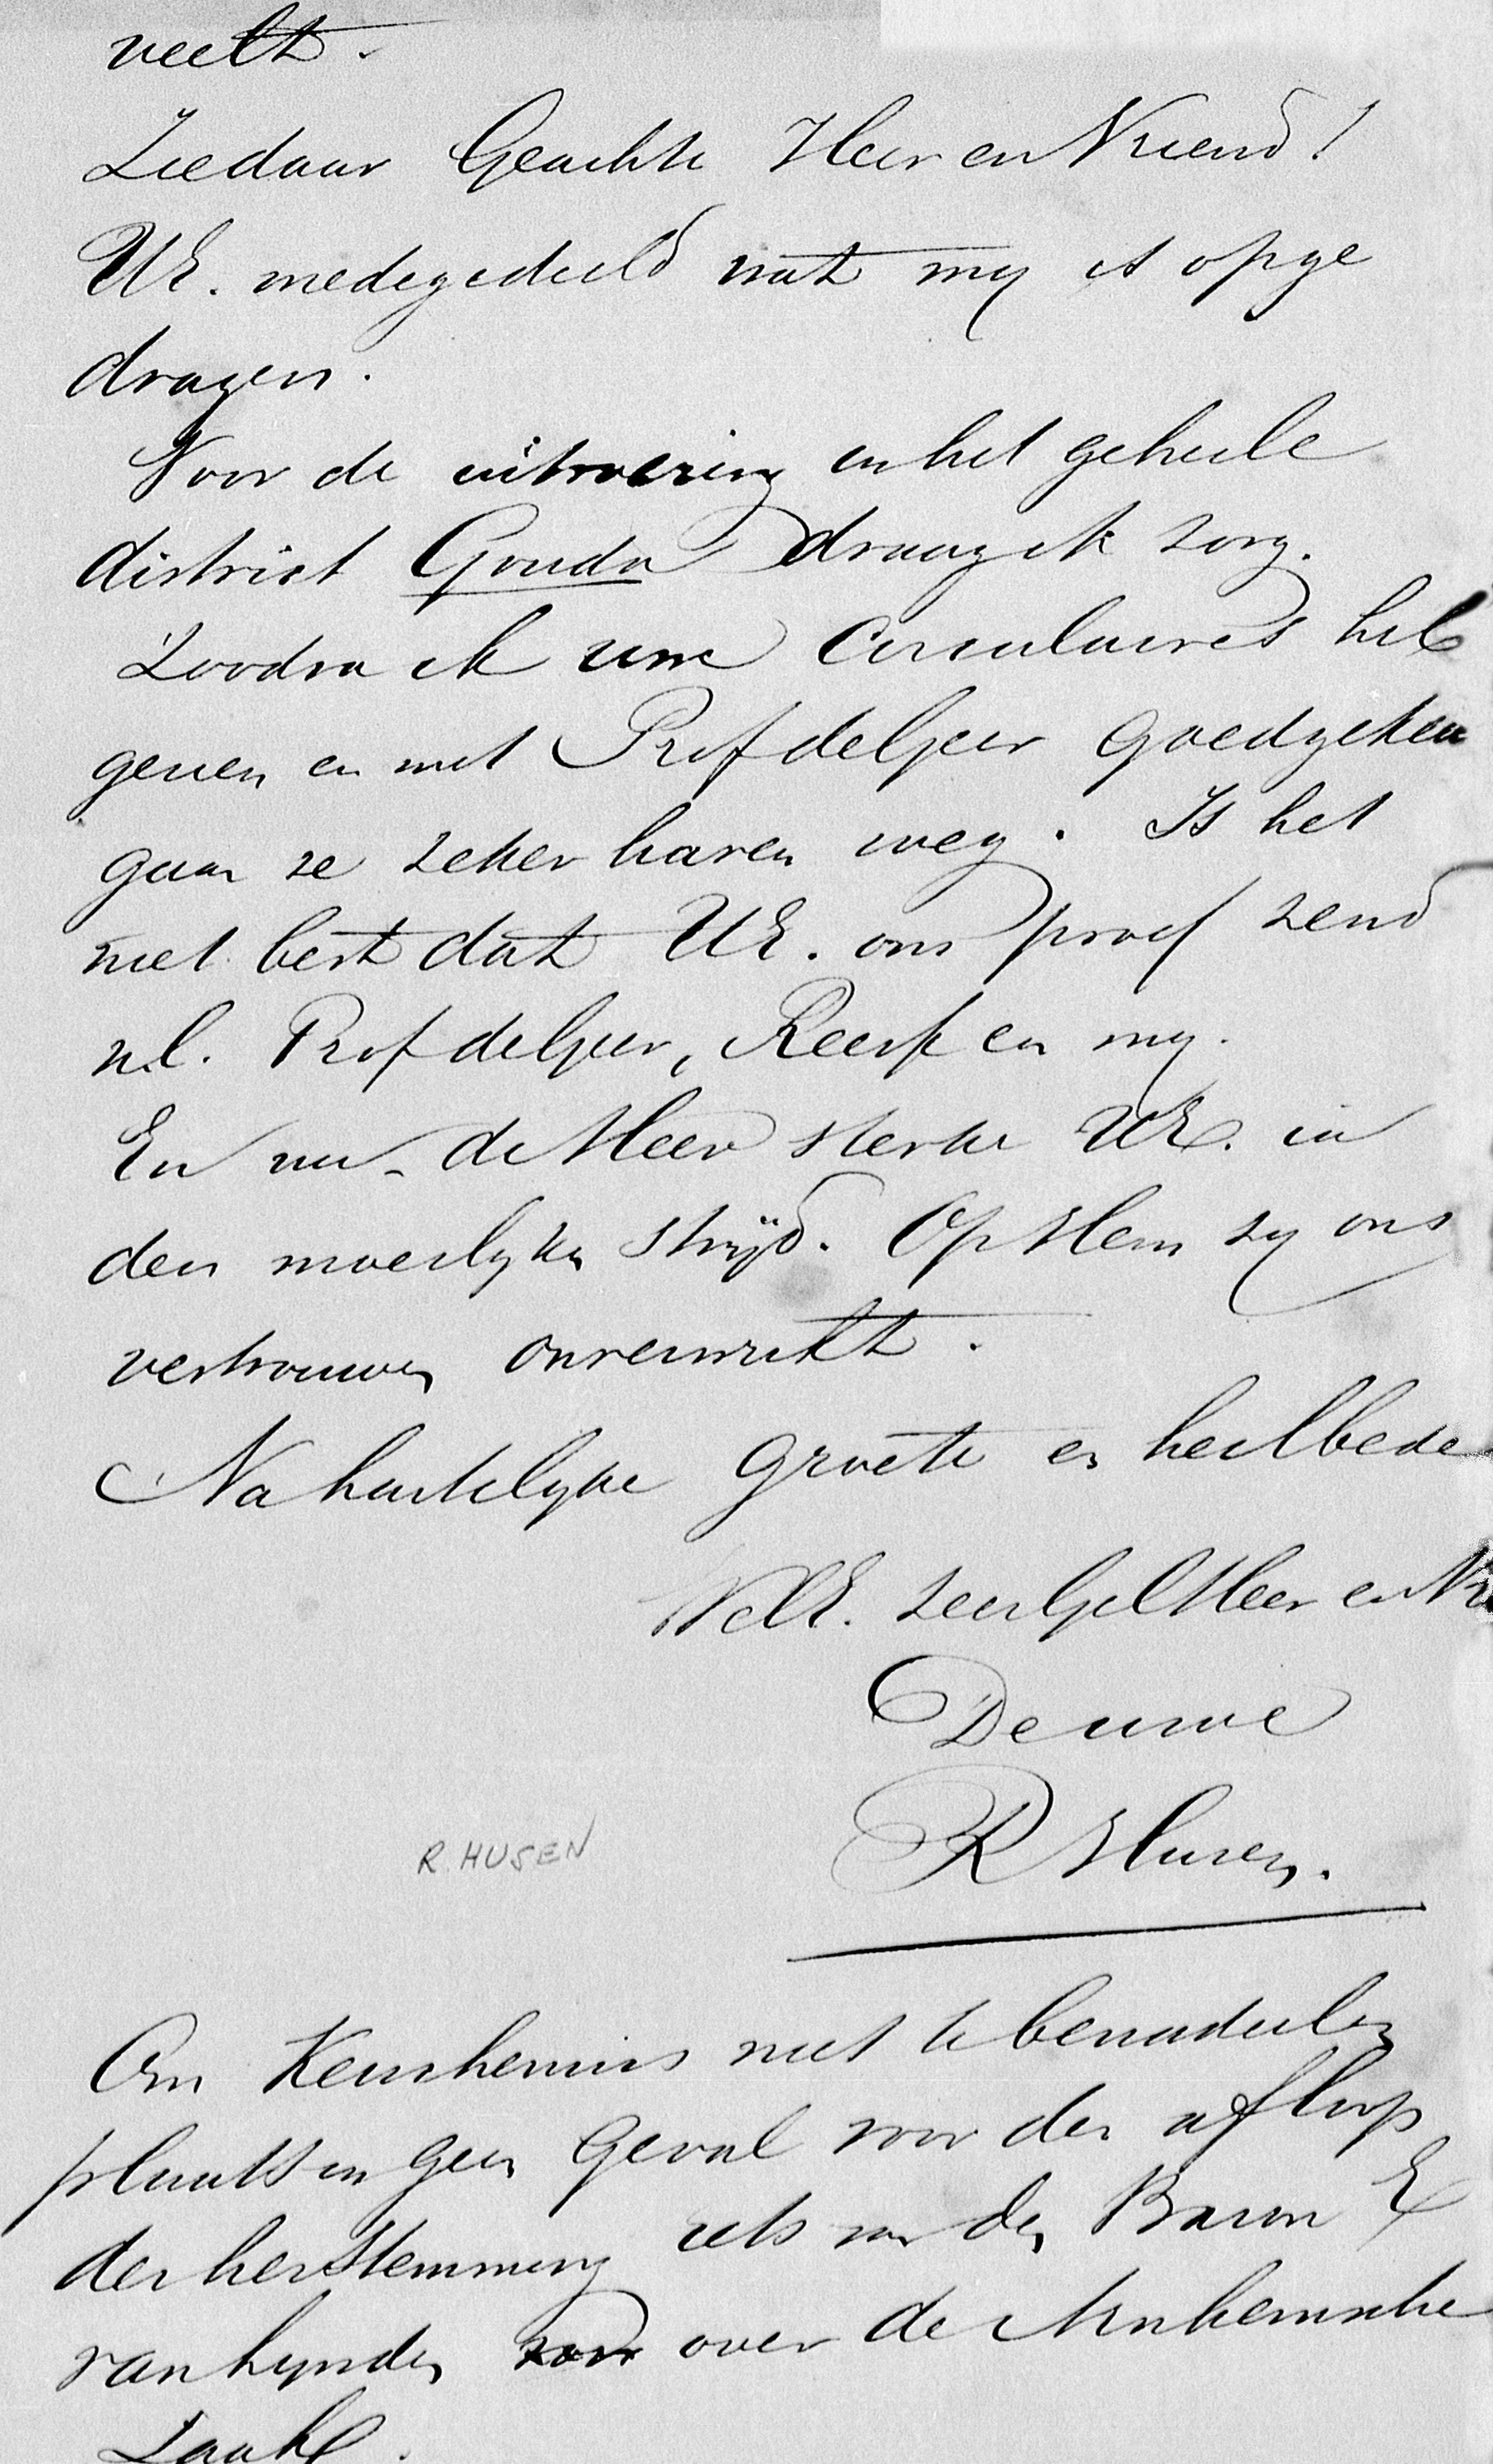 veelt.
Ziedaar Geachte Heer en Vriend!
UE. medegedeeld wat my is opge
dragen.
Voor de uitvoering in het geheele
district Gouda draag ik zorg.
Zoodra ik uwe Circulaires heb
gezien en met Prof de Geer goedgekeu
gaan ze zeker haren weg. Is het
niet best dat UE. ons proef zend
n.l. Prof de Geer, Reerk en my.
En nu - de Heer sterke UE. in
den moeilyken strijd. Op Hem zy ons
vertrouwen onverwrikt.
Na hartelyke groete en heilbede
WelE. zeer Gel Heer en Vri
De uwe
R Husen.
R. HUSEN
Om Keuchenius niet te benadeelen
plaats in geen geval voor den afloop
der herstemming iets van den Baron E
van Lynden over de Arnhemsche
Zaak.